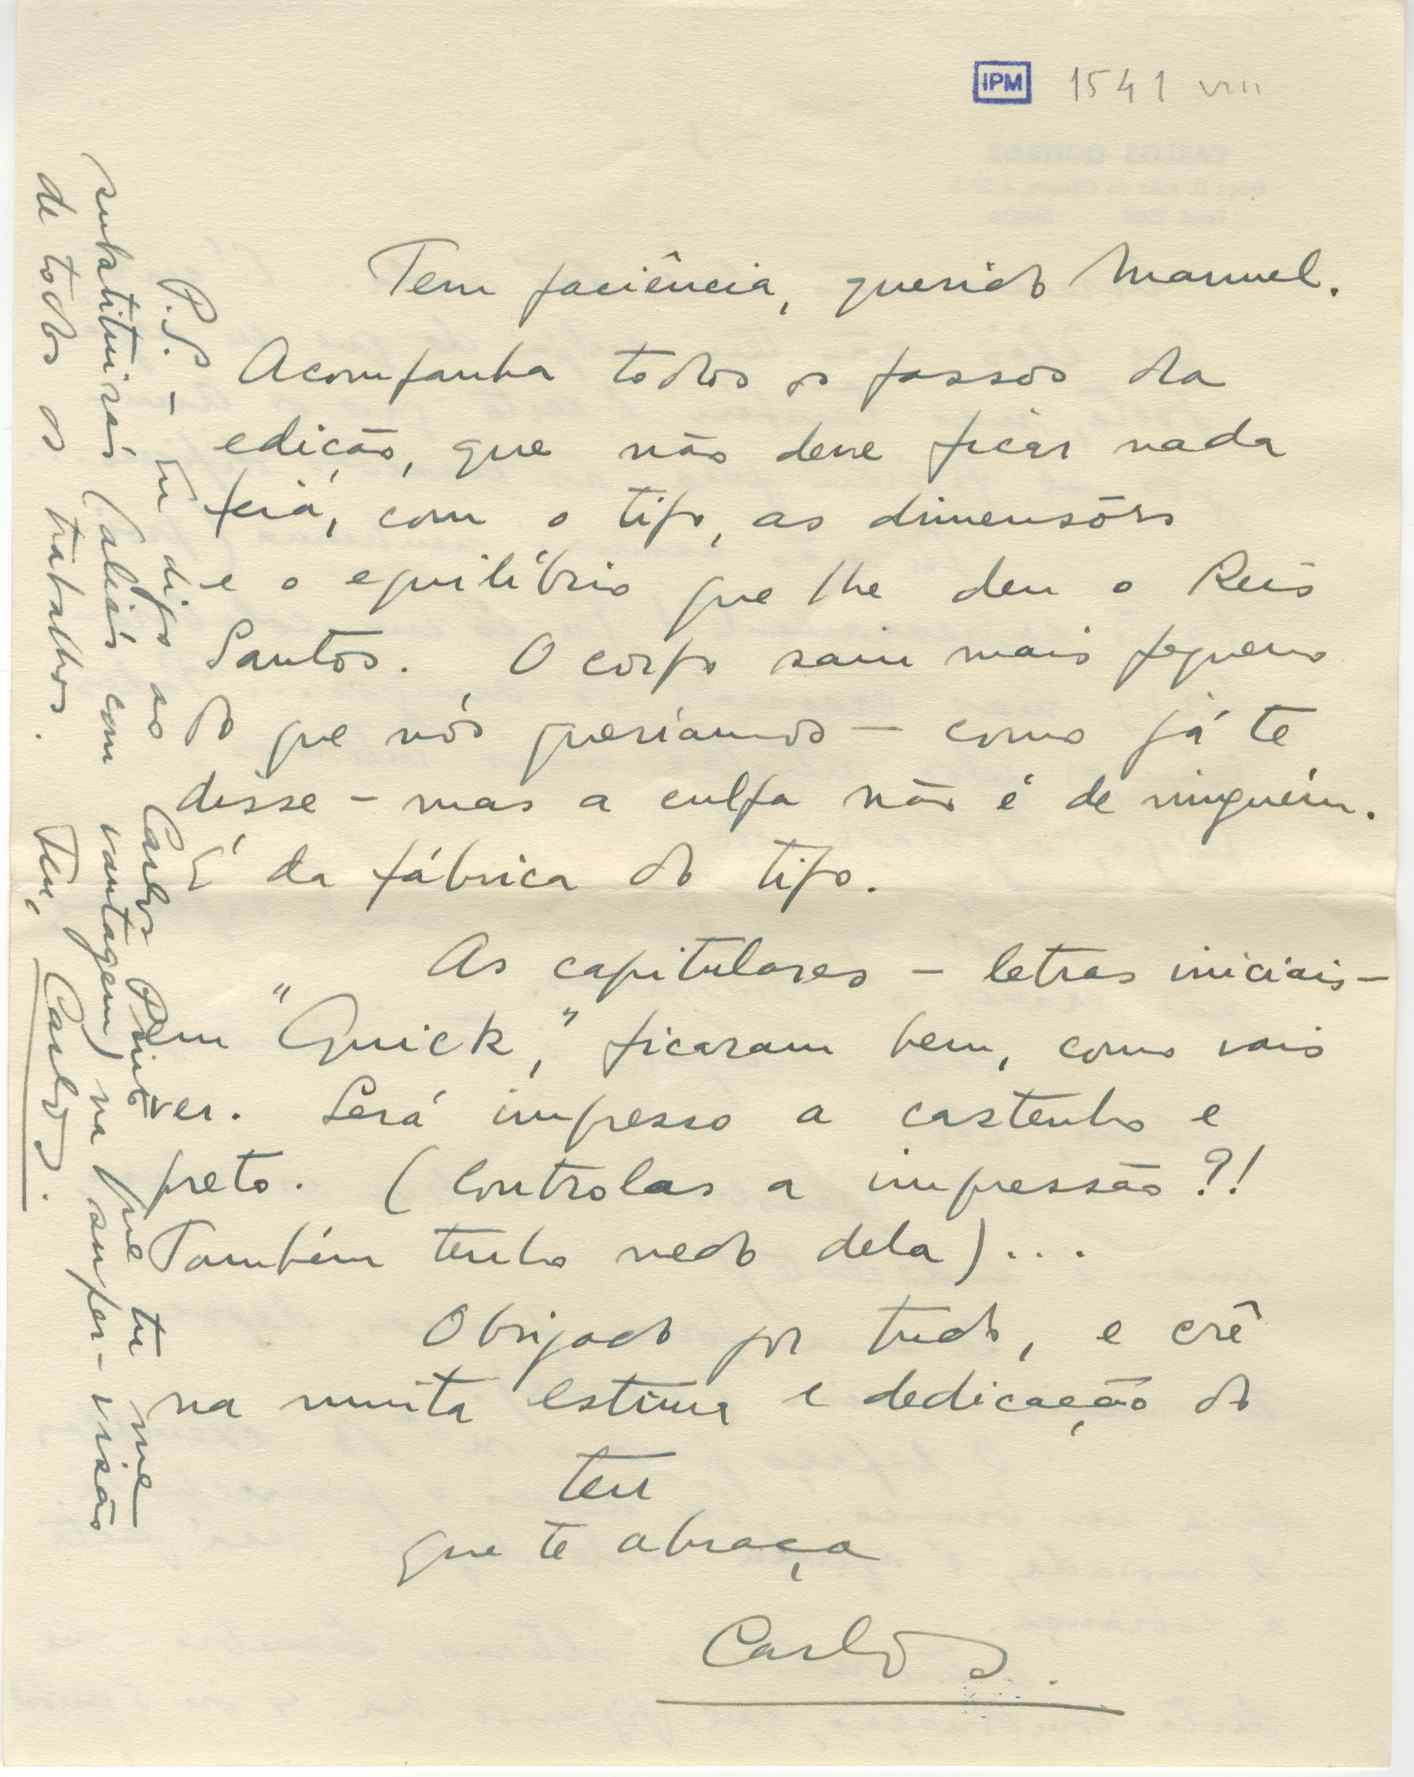 IPM 1541 VIII
Tem paciência, querido Manuel.
Acompanha todos os passos da
edição, que não deve ficar nada
feia, com o tipo, as dimensões
e o equilíbrio que lhe deu o Reis
Santos. O corpo saiu mais pequeno
do que nós queríamos — como já te
disse — mas a culpa não é de ninguém.
É da fábrica do tipo.
As capitulares — letras iniciais —
em "Quick", ficaram bem, como vais
ver. Será impresso a castanho e
preto. (Controlas a impressão?!
Também tenho medo dela)...
Obrigado por tudo, e crê
na muita estima e dedicação do
teu
que te abraça
Carlos.
P.S. — Eu digo ao Carlos Pinto que tu me
substituirás (aliás com vantagem) na super-visão
de todos os trabalhos. Teu, Carlos.